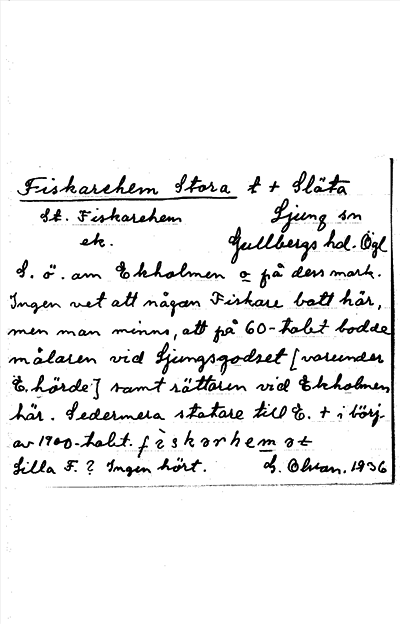 Fiskarehem Stora t + Släta
St. Fiskarehem Ljung sn
ek. Gullbergs hd. Ögl
S. ö. om Ekholmen o på dess mark.
Ingen vet att någon Fiskare bott här,
men man minns, att på 60-talet bodde
målaren vid Ljungsgodset [varunder
E. hörde] samt rättaren vid Ekholmen
här. Sedermera statare till E. + i börj.
av 1900-talet. fiskarhemət
Lilla F.? Ingen hört. 1936